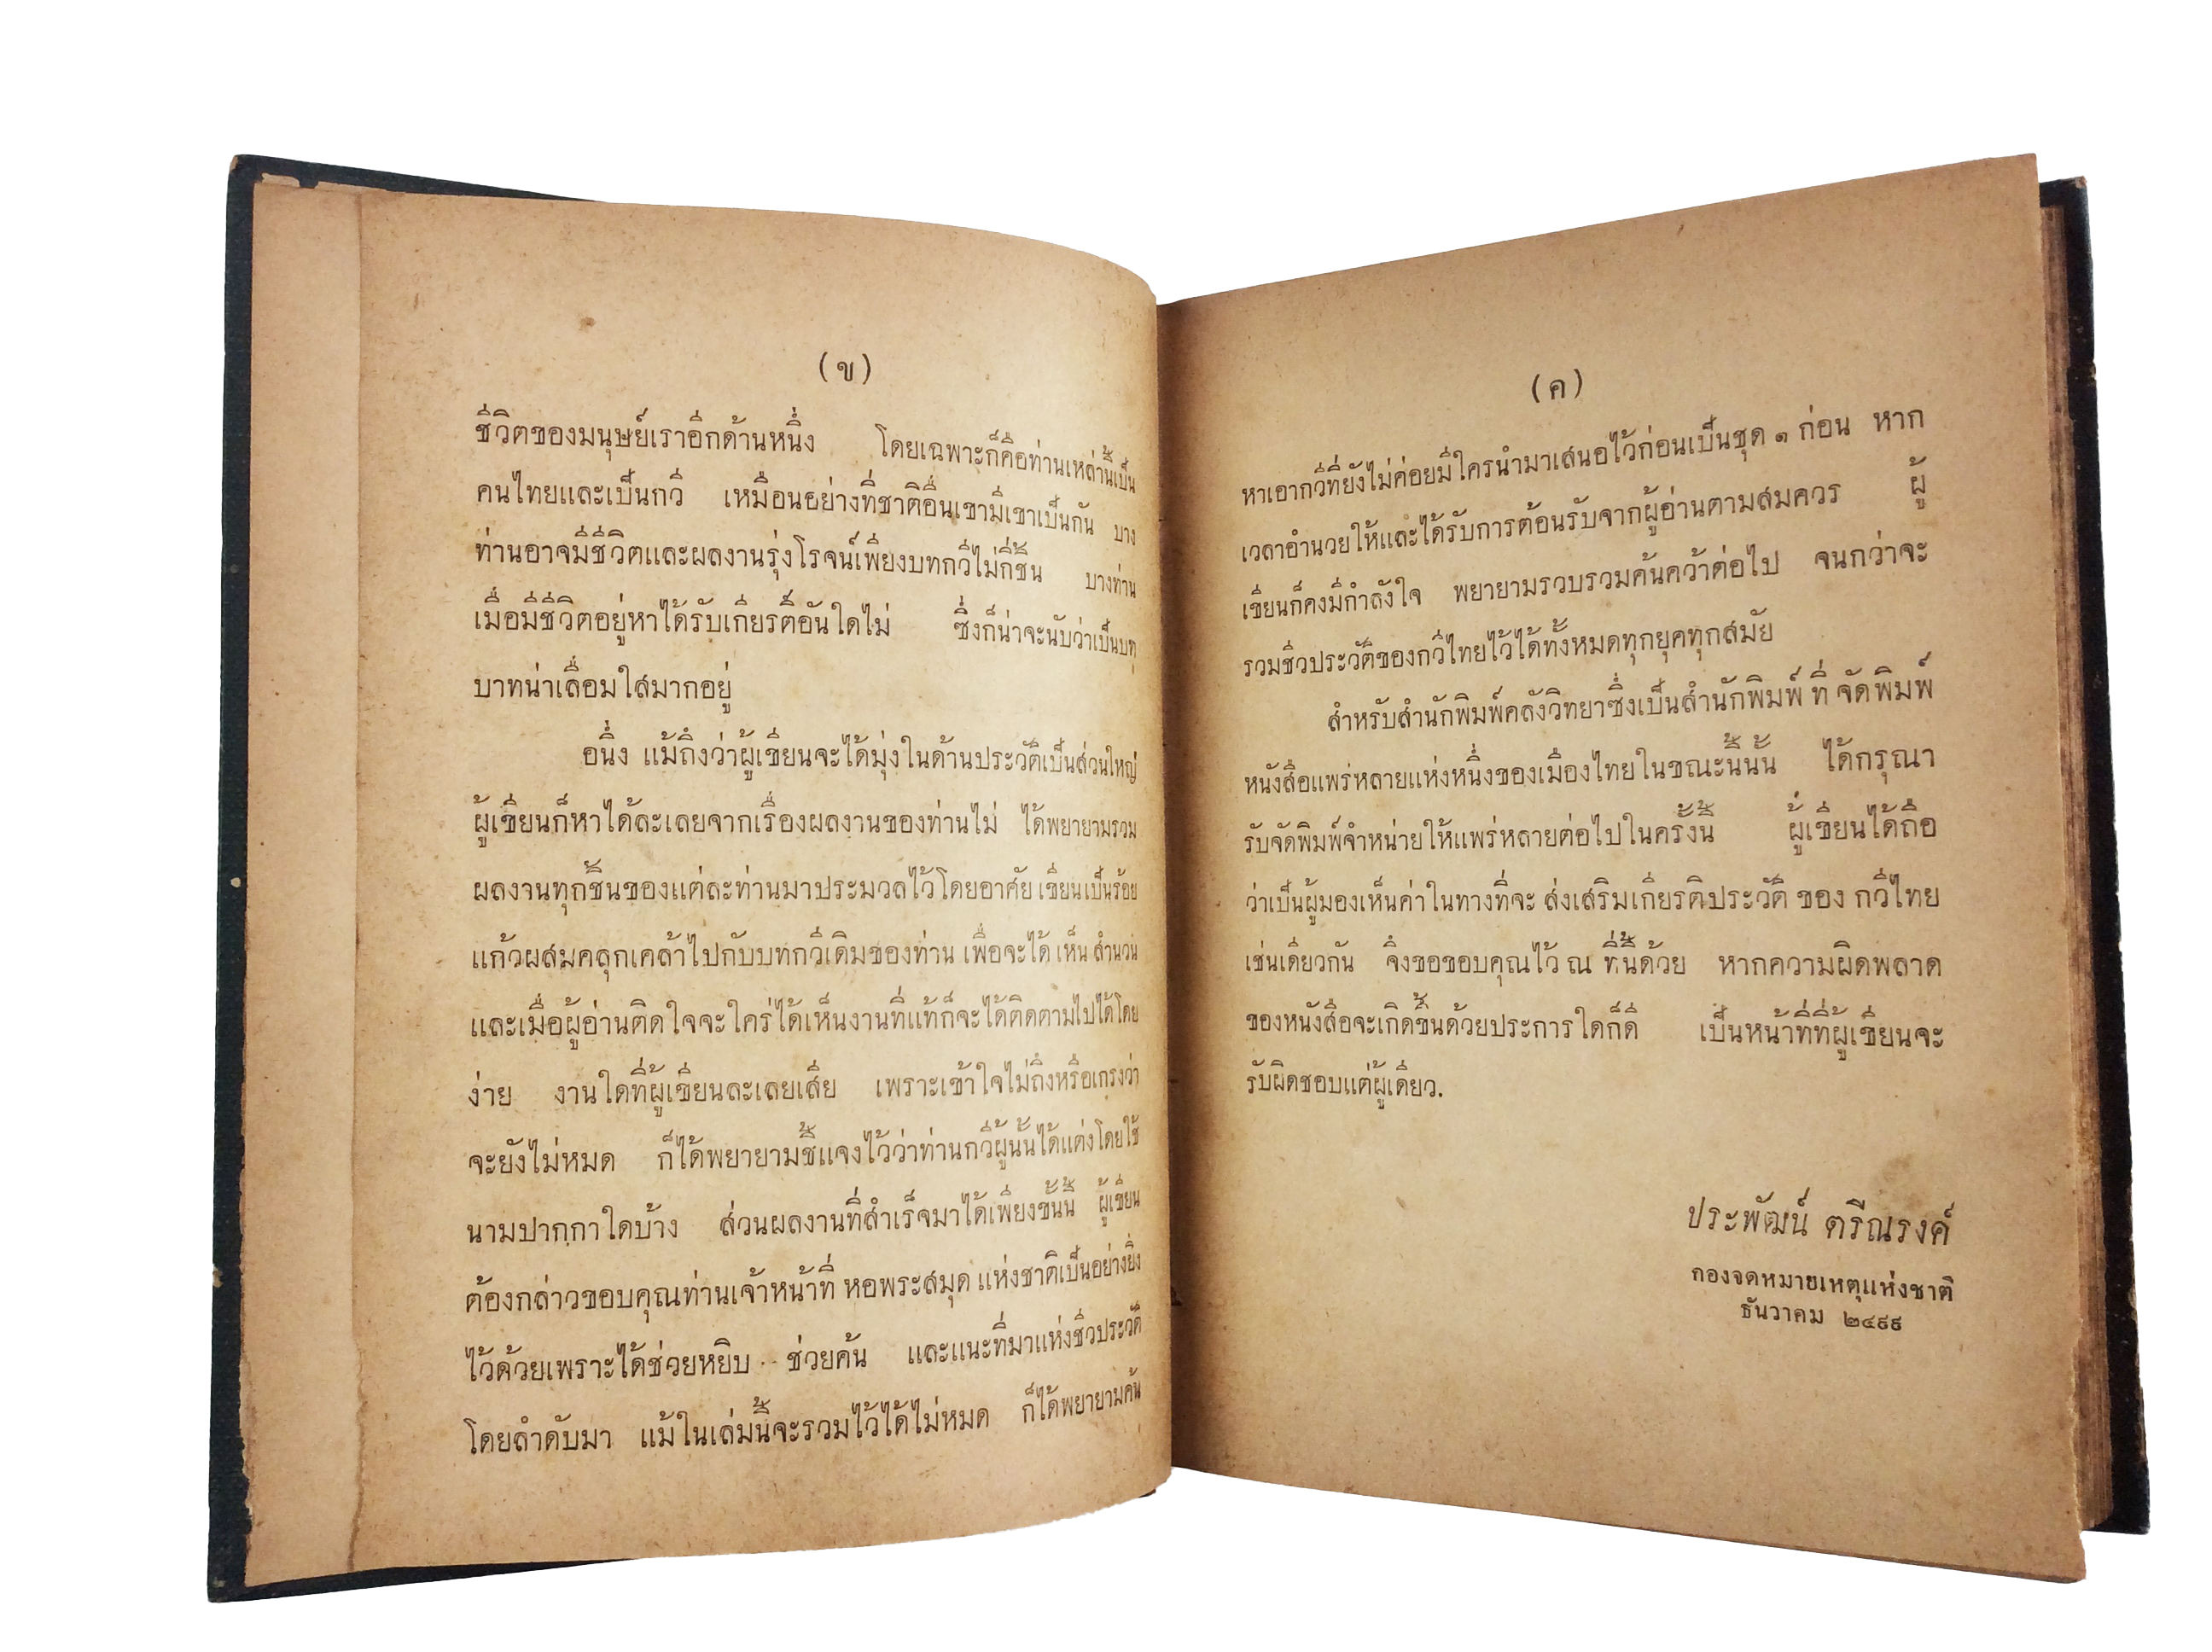 (ข)
ชีวิตของมนุษย์เราอีกด้านหนึ่ง โดยเฉพาะก็คือท่านเหล่านี้เป็น
คนไทยและเป็นกวี เหมือนอย่างที่ชาติอื่นเขามีเขาเป็นกัน บาง
ท่านอาจมีชีวิตและผลงานรุ่งโรจน์เพียงบทกวีไม่กี่ชิ้น บางท่าน
เมื่อมีชีวิตอยู่หาได้รับเกียรติอันใดไม่ ซึ่งก็น่าจะนับว่าเป็นบท
บาทน่าเลื่อมใสมากอยู่
อนึ่ง แม้ถึงว่าผู้เขียนจะได้มุ่งในด้านประวัติเป็นส่วนใหญ่
ผู้เขียนก็หาได้ละเลยจากเรื่องผลงานของท่านไม่ ได้พยายามรวม
ผลงานทุกชิ้นของแต่ละท่านมาประมวลไว้โดยอาศัย เขียนเป็นร้อย
แก้วผสมคลุกเคล้าไปกับบทกวีเดิมของท่าน เพื่อจะได้ เห็น สำนวน
และเมื่อผู้อ่านติดใจจะใคร่ได้เห็นงานที่แท้ก็จะได้ติดตามไปได้โดย
ง่าย งานใดที่ผู้เขียนละเลยเสีย เพราะเข้าใจไม่ถึงหรือเกรงว่า
จะยังไม่หมด ก็ได้พยายามชี้แจงไว้ว่าท่านกวีผู้นั้นได้แต่งโดยใช้
นามปากกาใดบ้าง ส่วนผลงานที่สำเร็จมาได้เพียงขั้นนี้ ผู้เขียน
ต้องกล่าวขอบคุณท่านเจ้าหน้าที่ หอพระสมุด แห่งชาติเป็นอย่างยิ่ง
ไว้ด้วยเพราะได้ช่วยหยิบ ช่วยค้น และแนะที่มาแห่งชีวประวัติ
โดยลำดับมา แม้ในเล่มนี้จะรวมไว้ได้ไม่หมด ก็ได้พยายามค้น
(ค)
หาเอากวีที่ยังไม่ค่อยมีใครนำมาเสนอไว้ก่อนเป็นชุด ๑ ก่อน หาก
เวลาอำนวยให้และได้รับการต้อนรับจากผู้อ่านตามสมควร ผู้
เขียนก็คงมีกำลังใจ พยายามรวบรวมค้นคว้าต่อไป จนกว่าจะ
รวมชีวประวัติของกวีไทยไว้ได้ทั้งหมดทุกยุคทุกสมัย
สำหรับสำนักพิมพ์คลังวิทยาซึ่งเป็นสำนักพิมพ์ ที่ จัดพิมพ์
หนังสือแพร่หลายแห่งหนึ่งของเมืองไทยในขณะนี้นั้น ได้กรุณา
รับจัดพิมพ์จำหน่ายให้แพร่หลายต่อไปในครั้งนี้ ผู้เขียนได้ถือ
ว่าเป็นผู้มองเห็นค่าในทางที่จะ ส่งเสริมเกียรติประวัติ ของ กวีไทย
เช่นเดียวกัน จึงขอขอบคุณไว้ ณ ที่นี้ด้วย หากความผิดพลาด
ของหนังสือจะเกิดขึ้นด้วยประการใดก็ดี เป็นหน้าที่ที่ผู้เขียนจะ
รับผิดชอบแต่ผู้เดียว.
ประพัฒน์ ตรีณรงค์
กองจดหมายเหตุแห่งชาติ
ธันวาคม ๒๔๙๙